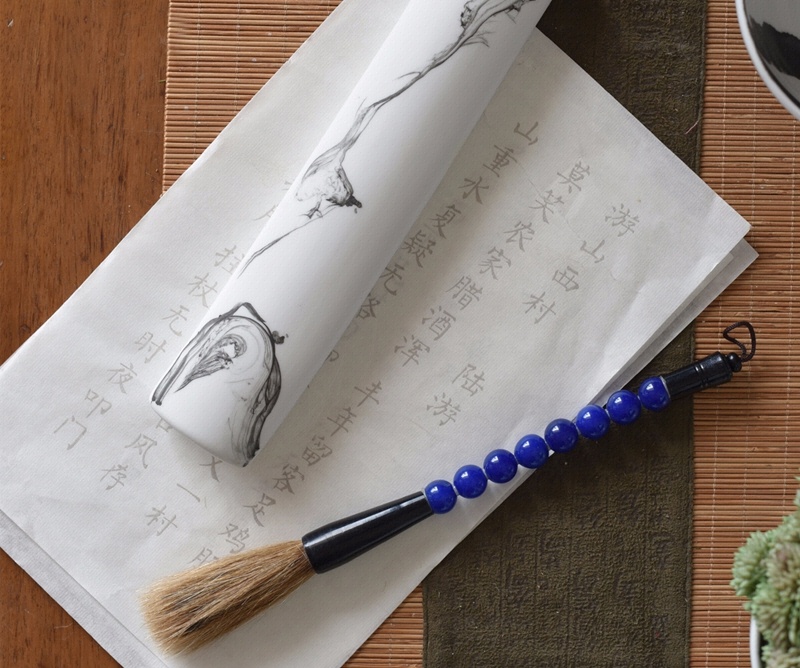 游山西村 陆游
莫笑农家腊酒浑 丰年留客足鸡
山重水复疑无路 又一村
风存
拄杖无时夜叩门